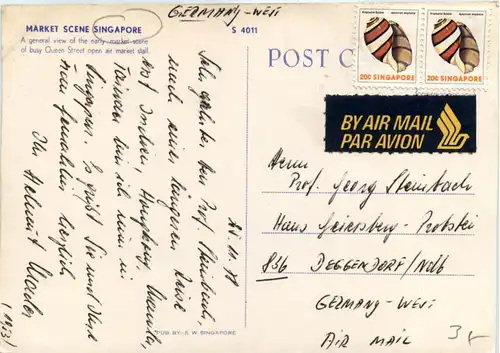 GERMANY-WEST
MARKET SCENE SINGAPORE
A general view of the early market scene
of busy Queen Street open air market stall.
S 4011
POST C
20c SINGAPORE
20c SINGAPORE
BY AIR MAIL
PAR AVION
21.11.78
Sehr geehrter Herr Prof. Steinbach,
nach einer längeren Reise
Hongkong, Manila,
bin ich nun in
Singapur. Es grüßt Sie und Ihre
Frau Gemahlin herzlich
Ihr Helmut
(1973)
Herrn
Prof. Georg Steinbach
Haus Geiersberg-
836 DEGGENDORF/Ndb
GERMANY-WEST
AIR MAIL
PUB. BY: S. W. SINGAPORE